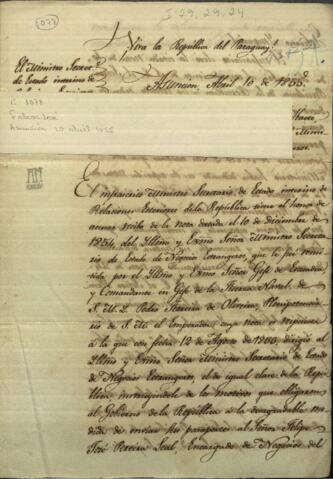 I-29,24,24
1077
Viva la República del Paraguay!
Asuncion Abril 10 de 1855.
El Ministro Secreto.
de Estado interino de
C. 1077
Falcon José
Asunción 10 abril 1855
El infrascrito Ministro Secretario de Estado interino de
Relaciones Esteriores de la República tiene el honor de
acusar recibo de la nota datada el 10 de diciembre de
1854, del Illmo y Exmo Señor Ministro Secreta-
rio de Estado de Negocios Estrangeros, que le fue remi-
tida por el Illmo y Exmo Señor Gefe de Escuadra
y Comandante en Gefe de las fuerzas Naval de
S. M. I. Pedro Ferreira de Oliveira, Plenipotencia-
rio de S. M. el Emperador, cuya nota es respuesta
á la que con fecha 12 de Agosto de 1853, dirigió al
Illmo y Exmo Señor Ministro Secretario de Estado
de Negocios Estrangeros, el de igual clase de la Repú-
blica, instruyendole de los motivos que obligaron
al Gobierno de la República a la desagradable me-
dida de enviar su pasaporte al Señor Felipe
José Pereira Leal, Encargado de Negocios del